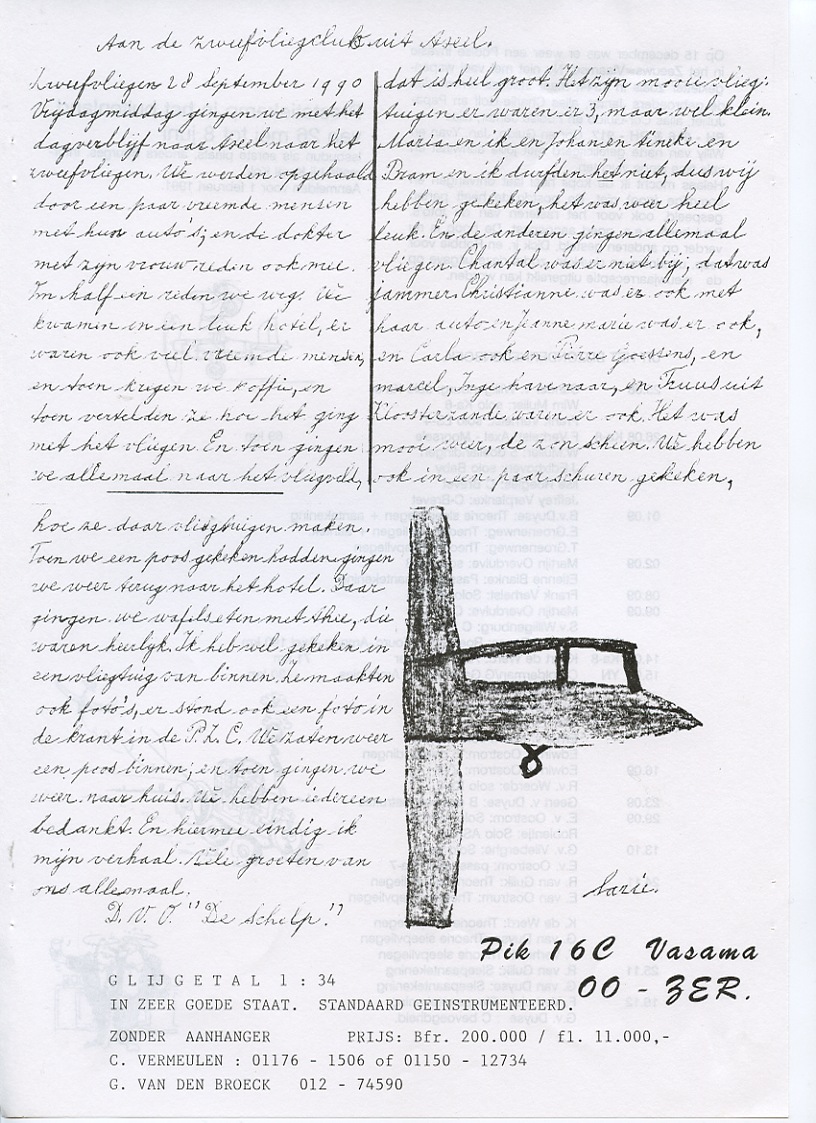 Aan de zweefvliegclub uit Axel.
Zweefvliegen 28 September 1990
Vrijdagmiddag gingen we met het
dagverblijf naar Axel naar het
zweefvliegen. We werden opgehaald
door een paar vreemde mensen
met hun auto's; en de dokter
met zijn vrouw reden ook mee.
Om half een reden we weg. We
kwamen in een leuk hotel, er
waren ook veel vreemde mensen,
en toen kregen we koffie, en
toen vertelden ze hoe het ging
met het vliegen. En toen gingen
we allemaal naar het vliegveld,
dat is heel groot. Het zijn mooie vlieg-
tuigen er waren er 3, maar wel klein.
Maria en ik en Johan en Tineke en
Bram en ik durfden het niet, dus wij
hebben gekeken, het was weer heel
leuk. En de anderen gingen allemaal
vliegen. Chantal was er niet bij, dat was
jammer. Christianne was er ook met
haar auto en Jeanne marie was er ook,
en Carla ook en Pirre Goessens, en
marcel, Inge havenaar, en Truus uit
Kloosterzande waren er ook. Het was
mooi weer, de zon scheen. We hebben
ook in een paar schuren gekeken,
hoe ze daar vliegtuigen maken.
Toen we een poos gekeken hadden gingen
we weer terug naar het hotel. Daar
gingen we wafels eten met thee, die
waren heerlyk. Ik heb wel gekeken in
een vliegtuig van binnen. Ze maakten
ook foto's, er stond ook een foto in
de krant in de P.Z.C. We zaten weer
een poos binnen; en toen gingen we
weer naar huis. We hebben iedereen
bedankt. En hiermee eindig ik
mijn verhaal. Vele groeten van
ons allemaal.
D.V.O. "De Schelp."
Sarie.
Pik 16C Vasama
OO - ZER.
GLIJGETAL 1 : 34
IN ZEER GOEDE STAAT. STANDAARD GEINSTRUMENTEERD.
ZONDER AANHANGER PRIJS: Bfr. 200.000 / fl. 11.000,-
C. VERMEULEN : 01176 - 1506 of 01150 - 12734
G. VAN DEN BROECK 012 - 74590